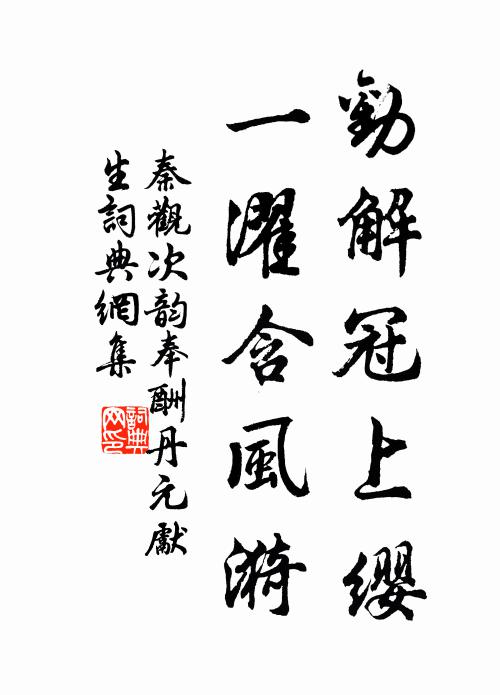 勸解冠上纓
一濯含風漪
秦觀次韵奉酬丹元獻
生詞典網集
詞典
网印